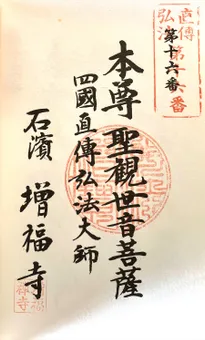 直傳
弘法
第十六番
第十六番
本尊聖観世音菩薩
四國直傳弘法大師
石濱 増福寺